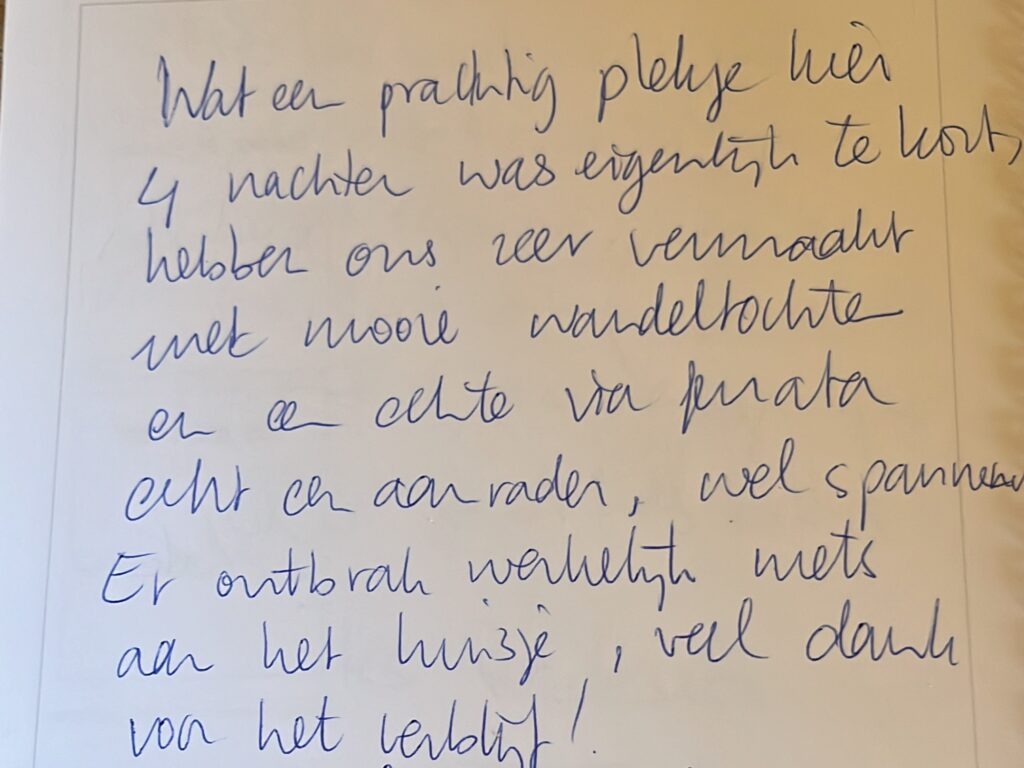 Wat een prachtig plekje hier
4 nachten was eigenlijk te kort,
hebben ons zeer vermaakt
met mooie wandeltochte
en een echte via ferrata
echt een aanraden, wel spannend
Er ontbrak werkelijk niets
aan het huisje, veel dank
voor het verblijf!